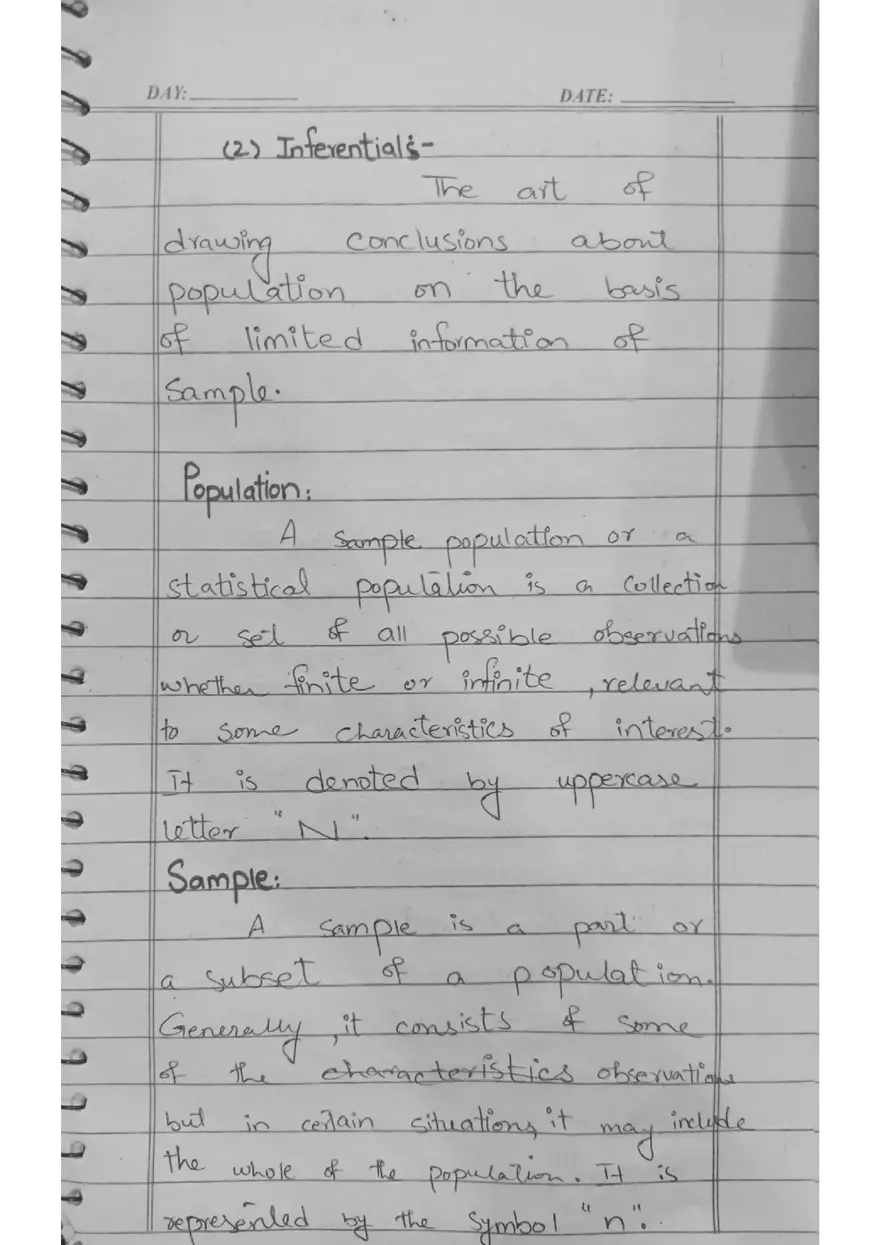 DAY: DATE:
(2) Inferential:-
The art of
drawing conclusions about
population on the basis
of limited information of
Sample.
Population:
A sample population or a
statistical population is a collection
or set of all possible observations
whether finite or infinite, relevant
to some characteristics of interest.
It is denoted by uppercase
letter "N".
Sample:
A sample is a part or
a subset of a population.
Generally, it consists of some
of the characteristics observations
but in certain situations, it may include
the whole of the population. It is
represented by the symbol "n".